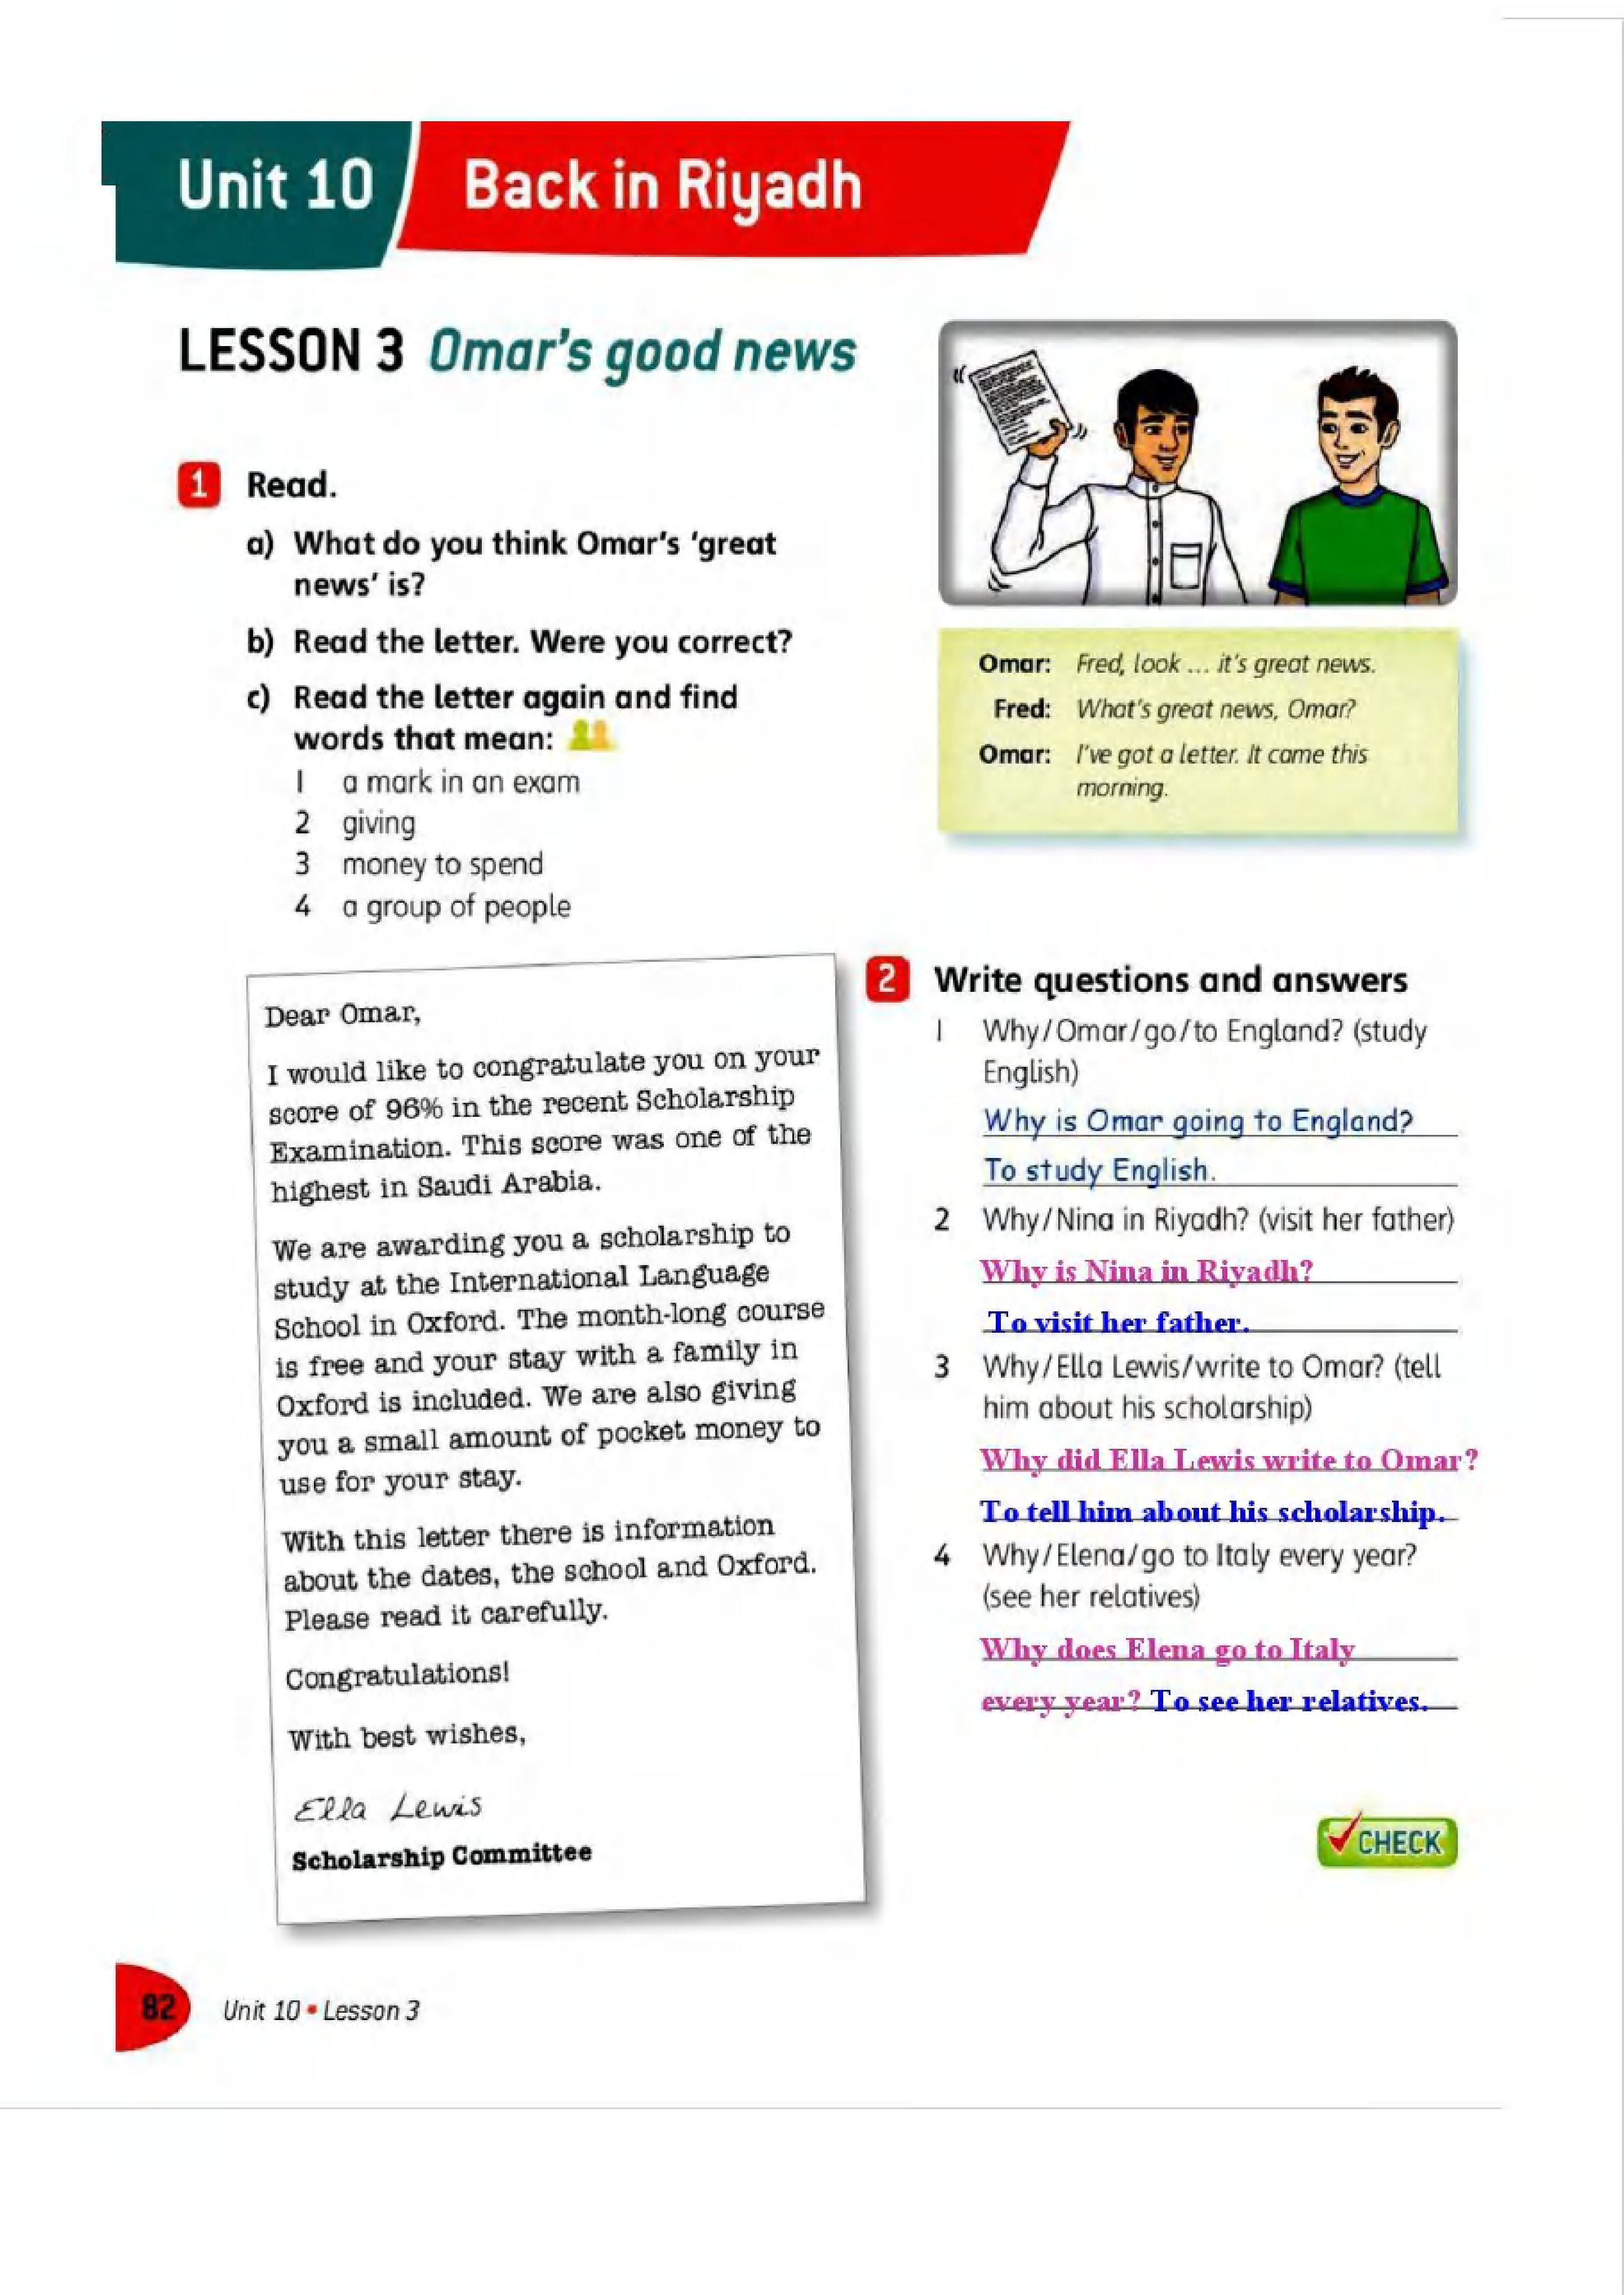 Unit 10 Back in Riyadh
LESSON 3 Omar's good news
1 Read.
a) What do you think Omar's 'great
news' is?
b) Read the letter. Were you correct?
c) Read the letter again and find
words that mean:
1 a mark in an exam
2 giving
3 money to spend
4 a group of people
Omar: Fred, look ... it's great news.
Fred: What's great news, Omar?
Omar: I've got a letter. It came this
morning.
Dear Omar,
I would like to congratulate you on your
score of 96% in the recent Scholarship
Examination. This score was one of the
highest in Saudi Arabia.
We are awarding you a scholarship to
study at the International Language
School in Oxford. The month-long course
is free and your stay with a family in
Oxford is included. We are also giving
you a small amount of pocket money to
use for your stay.
With this letter there is information
about the dates, the school and Oxford.
Please read it carefully.
Congratulations!
With best wishes,
Ella Lewis
Scholarship Committee
2 Write questions and answers
1 Why/Omar/go/to England? (study
English)
Why is Omar going to England?
To study English.
2 Why/Nina in Riyadh? (visit her father)
Why is Nina in Riyadh?
To visit her father.
3 Why/Ella Lewis/write to Omar? (tell
him about his scholarship)
Why did Ella Lewis write to Omar?
To tell him about his scholarship.
4 Why/Elena/go to Italy every year?
(see her relatives)
Why does Elena go to Italy
every year? To see her relatives.
CHECK
82 Unit 10 • Lesson 3